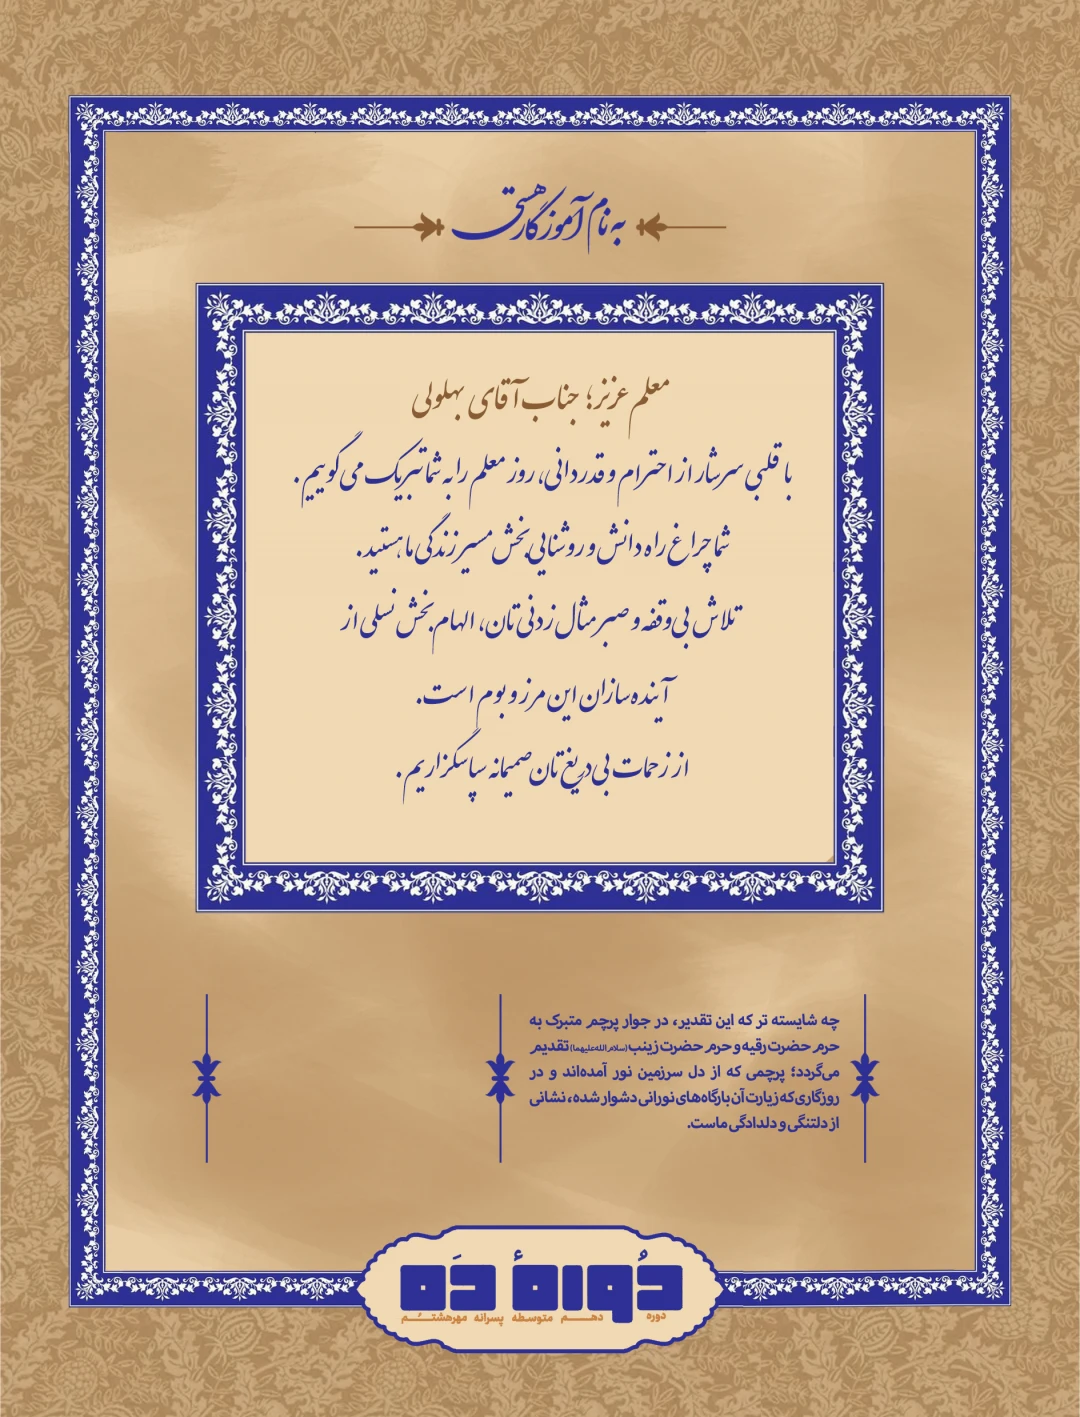 به نام آموزگار هستی
معلم عزیز؛ جناب آقای بهلولی
با قلبی سرشار از احترام و قدردانی، روز معلم را به شما تبریک می‌گوییم.
شما چراغ راه دانش و روشنایی‌بخش مسیر زندگی ما هستید.
تلاش بی‌وقفه و صبر مثال زدنی‌تان، الهام‌بخش نسلی از
آینده‌سازان این مرز و بوم است.
از زحمات بی‌دریغ‌تان صمیمانه سپاسگزاریم.
چه شایسته تر که این تقدیر، در جوار پرچم متبرک به
حرم حضرت رقیه و حرم حضرت زینب (سلام‌الله‌علیهما) تقدیم
می‌گردد؛ پرچمی که از دل سرزمین نور آمده‌اند و در
روزگاری که زیارت آن بارگاه‌های نورانی دشوار شده، نشانی
از دلتنگی و دلدادگی ماست.
دُورهٔ دَه
دوره دهم متوسطه پسرانه مهرهشتم